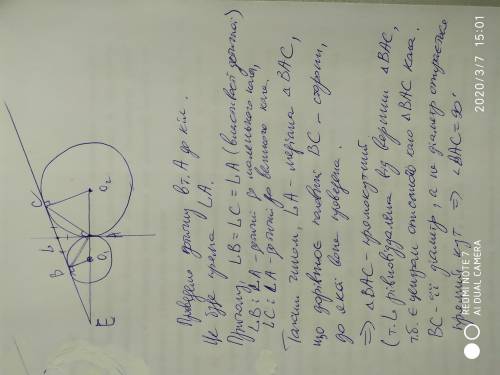 E
B
L
C
O₁
O₂
A
Проведемо дотичну в т. А до кіл.
Це буде пряма LA.
Причому, LB = LC = LA (властивості дотичної)
LB і LA - дотичні до маленького кола,
LC і LA - дотичні до великого кола.
Таким чином, LA - медіана △BAC,
що дорівнює половині BC - сторони,
до якої вона проведена.
⇒ △BAC - прямокутний
(т. L рівновіддалена від вершин △BAC,
т.б. є центром описаного кола △BAC кола.
BC - її діаметр, а на діаметр опирається
прямий кут ⇒ ∠BAC = 90°
REDMI NOTE 7
AI DUAL CAMERA
2020/3/7 15:01